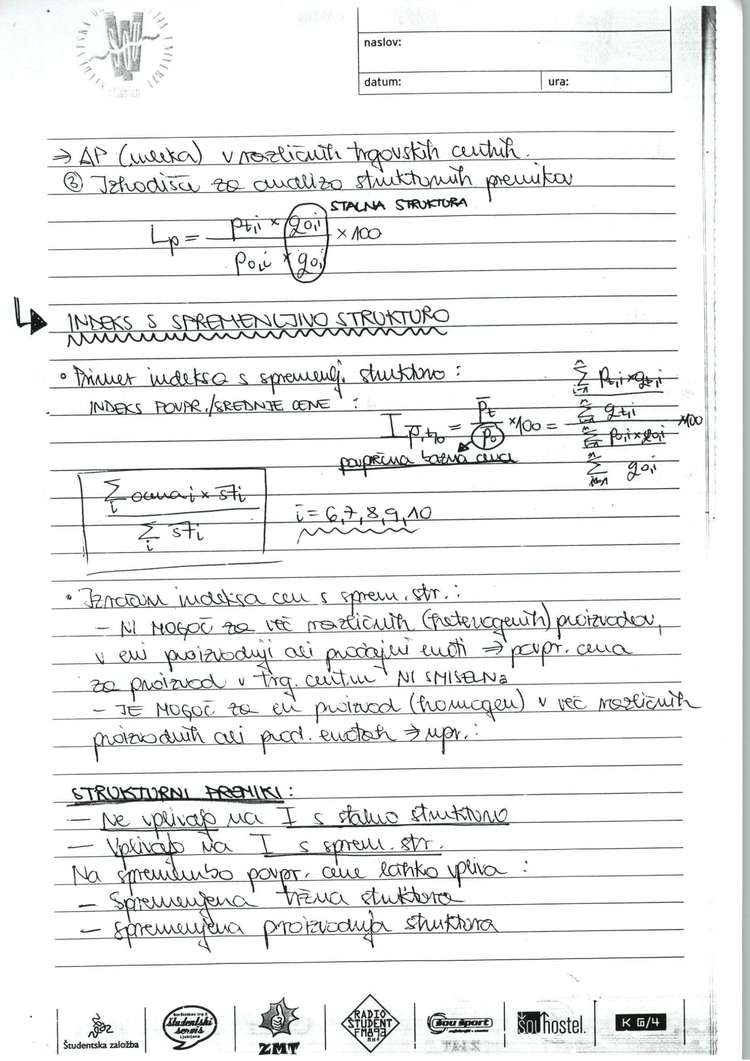 naslov:
datum: ura:
⇒ ΔP (mleka) v različnih trgovskih centrih.
③ Izhodišče za analizo strukturnih premikov
STALNA STRUKTURA
Lp = pt,i × q0,i / p0,i × q0,i × 100
INDEKS S SPREMENLJIVO STRUKTURO
• Primer indeksa s spremenlj. strukturo:
INDEKS POVPR./SREDNJE CENE:
I p̄,t/0 = p̄t / p̄0 × 100 = (∑ i=1 n pt,i × qt,i / ∑ i=1 n qt,i) / (∑ i=1 n p0,i × q0,i / ∑ i=1 n q0,i) × 100
povprečna bazna cena
∑i ocena i × šti / ∑i šti
i = 6,7,8,9,10
• Izračun indeksa cen s sprem. str.:
- NI MOGOČ za več različnih (heterogenih) proizvodov,
v eni proizvodnji ali prodajni enoti ⇒ povpr. cena
za proizvod v trg. centru NI SMISELNA
- JE MOGOČ za en proizvod (homogen) v več različnih
proizvodnih ali prod. enotah ⇒ npr.:
STRUKTURNI PREMIKI:
- Ne vplivajo na I s stalno strukturo
- Vplivajo na I s sprem. str.
Na spremembo povpr. cene lahko vpliva:
- Spremenjena tržna struktura
- spremenjena proizvodnja struktura
Študentska založba
študentski servis
Ljubljana
ZMT
RADIO ŠTUDENT
FM 89,3
MHz
Šou šport
Šouhostel.
K 6/4